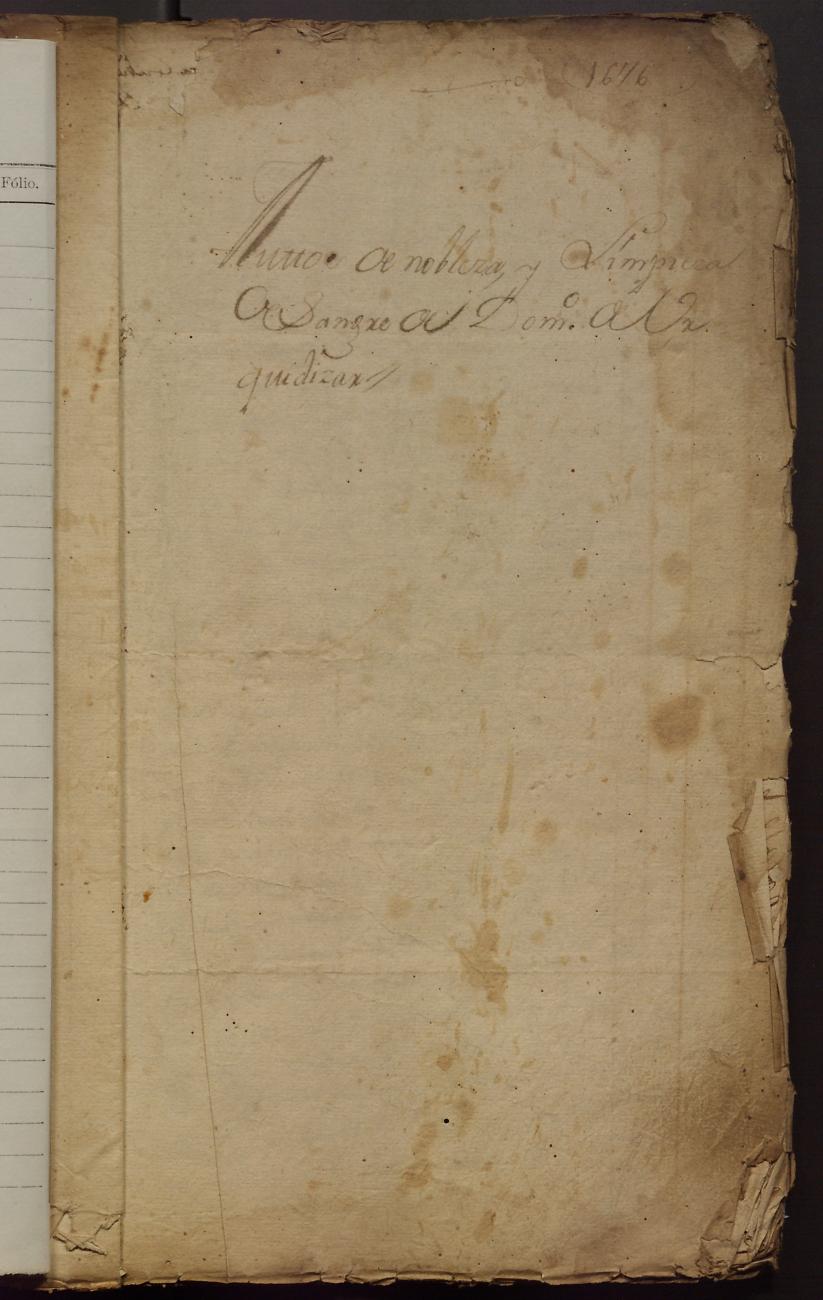 Fólio.
1646
Auttos de nobleza, y Limpieza
de Sangre de Domo. de Vr
quidizar